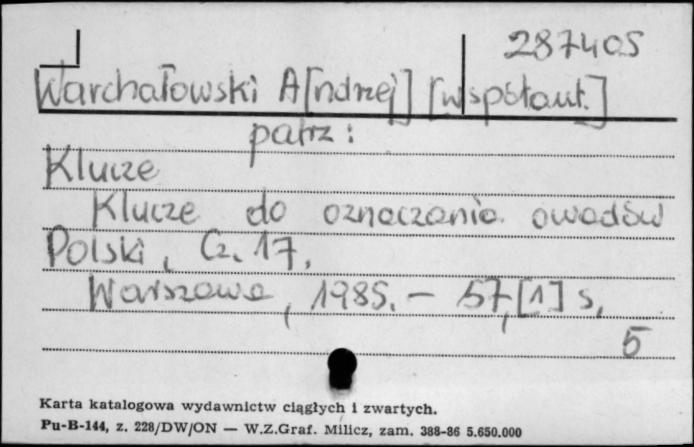 287405
Warchałowski A[ndrzej] [współaut.]
patrz:
Klucze
Klucze do oznaczania owadów
Polski, Cz. 17,
Warszawa, 1985. – 57,[1] s.
5
Karta katalogowa wydawnictw ciągłych i zwartych.
Pu-B-144, z. 228/DW/ON — W.Z.Graf. Milicz, zam. 388-86 5.650.000